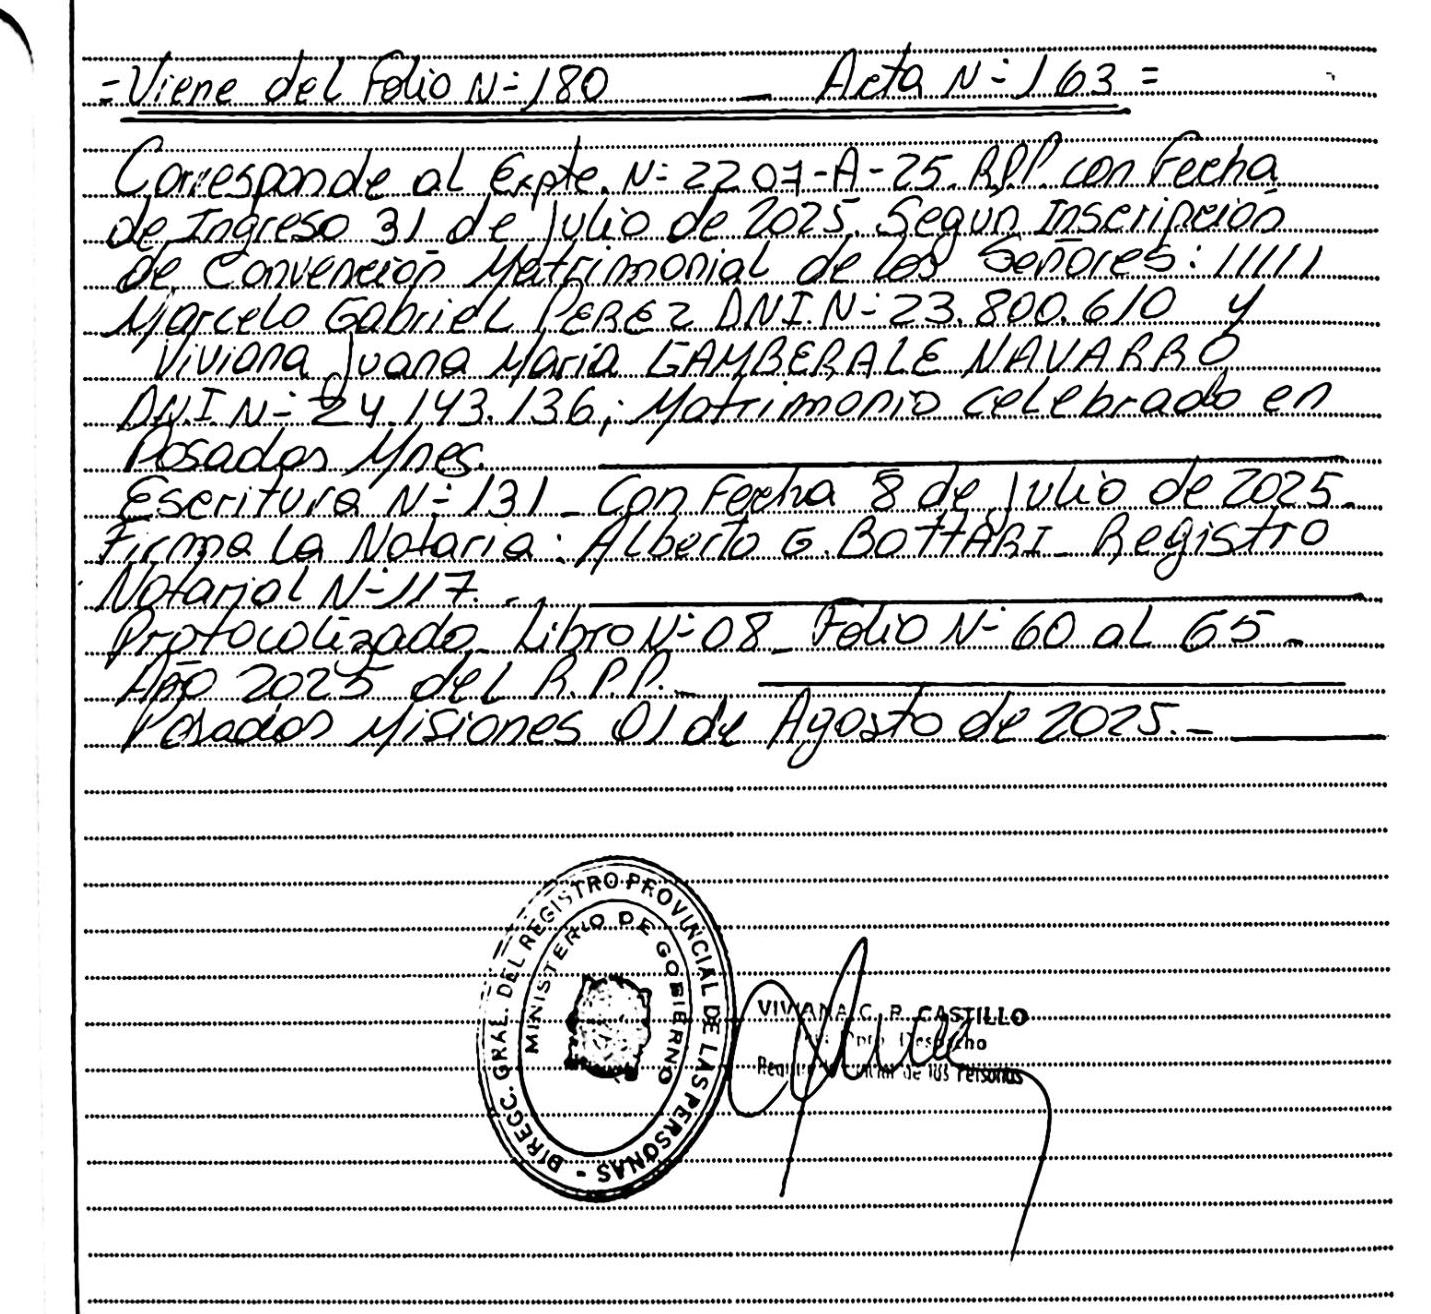 =Viene del Folio N-180 _ Acta N-163=
Corresponde al Expte. N- 2207-A-25. R.P.P. con Fecha
de Ingreso 31 de Julio de 2025. Segun Inscripción
de Convención Matrimonial de los Señores: /////
Marcelo Gabriel PEREZ DNI.N-23.800.610 y
Viviana Juana María GAMBERALE NAVARRO
DN.I.N-24.143.136; Matrimonio celebrado en
Posadas Mnes.
Escritura N-131_ Con Fecha 8 de Julio de 2025.
Firma La Notaria: Alberto G. BOTTARI_ Registro
Notarial N-117. -
Protocolizado_ Libro N-08_ Folio N-60 al 65-
Año 2025 del R.P.P.-
Posadas Misiones 01 de Agosto de 2025.-
DIRECC. GRAL. DEL REGISTRO PROVINCIAL DE LAS PERSONAS -
MINISTERIO DE GOBIERNO
VIVIANA C. R. CASTILLO
Dpto. Despacho
de las Personas